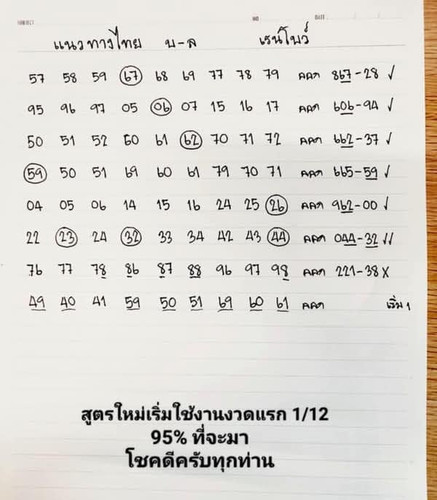 แนวทางไทย บ-ล เรนโบว์
57 58 59 67 68 69 77 78 79 ออก 867-28 ✓
95 96 97 05 06 07 15 16 17 ออก 606-94 ✓
50 51 52 60 61 62 70 71 72 ออก 662-37 ✓
59 50 51 69 60 61 79 70 71 ออก 665-59 ✓
04 05 06 14 15 16 24 25 26 ออก 962-00 ✓
22 23 24 32 33 34 42 43 44 ออก 044-32 ✓✓
76 77 78 86 87 88 96 97 98 ออก 221-38 X
49 40 41 59 50 51 69 60 61 ออก เริ่ม 1
สูตรใหม่เริ่มใช้งานงวดแรก 1/12
95% ที่จะมา
โชคดีครับทุกท่าน